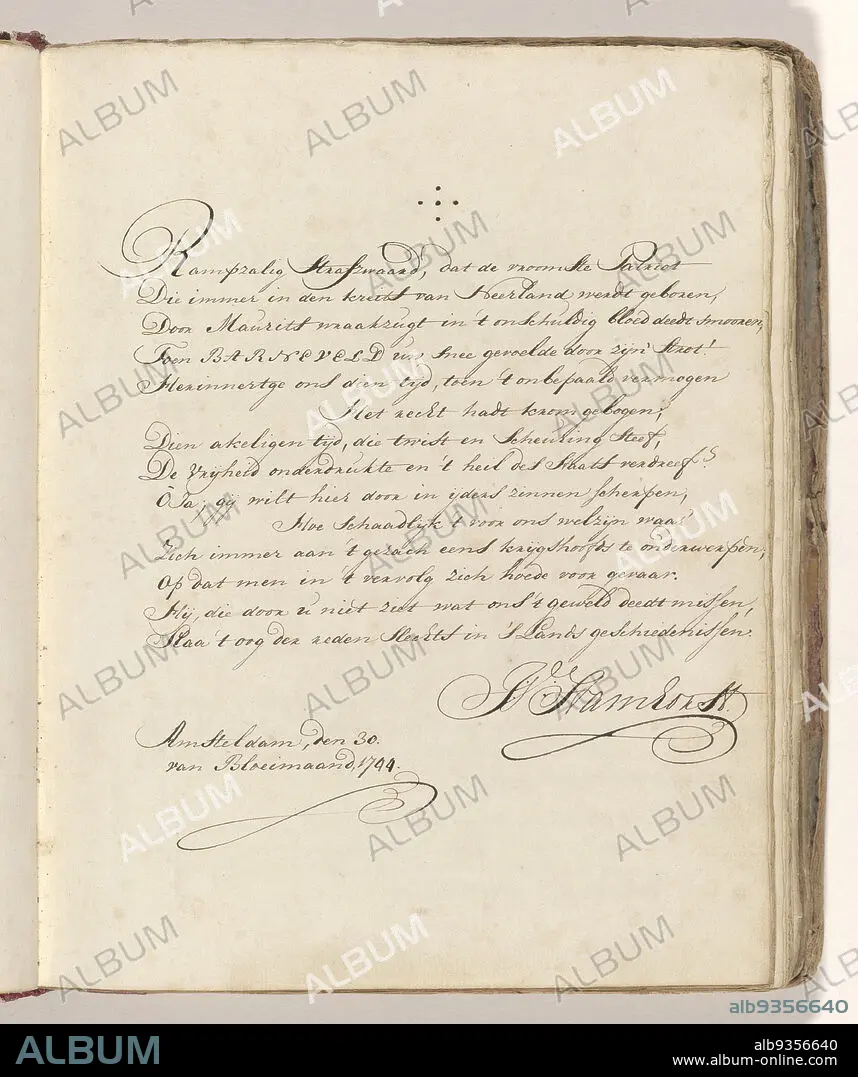 Rampzalig Strafzwaard, dat de vroomste Patriot
Die immer in den kreits van Neerland werdt geboren,
Door Maurits wraakzugt in 't onschuldig bloed deedt smooren,
Toen BARNEVELD uw snee gevoelde door zijn Strot!
Herinnertge ons dien tijd, toen 't onbepaald vermogen
Het recht hadt krom gebogen;
Dien akeligen tijd, die twist en Scheuring Steef,
De Vrijheid onderdrukte en 't heil des Staats verdreef?
ô Ja; gij wilt hier door in ijders zinnen scherpen,
Hoe Schaadlijk 't voor ons welzijn waar'
Zich immer aan 't gezach eens krijgshoofds te onderwerpen,
Op dat men in 't vervolg zich hoede voor gevaar.
Hij, die door u niet ziet wat ons 't geweld deedt missen,
Slaa 't oog der reden slechts in 's Lands geschiedenissen.
Amsteldam, den 30.
van Bloeimaand, 1744.
ALBUM
alb9356640
ALBUM
alb9356640
www.album-online.com